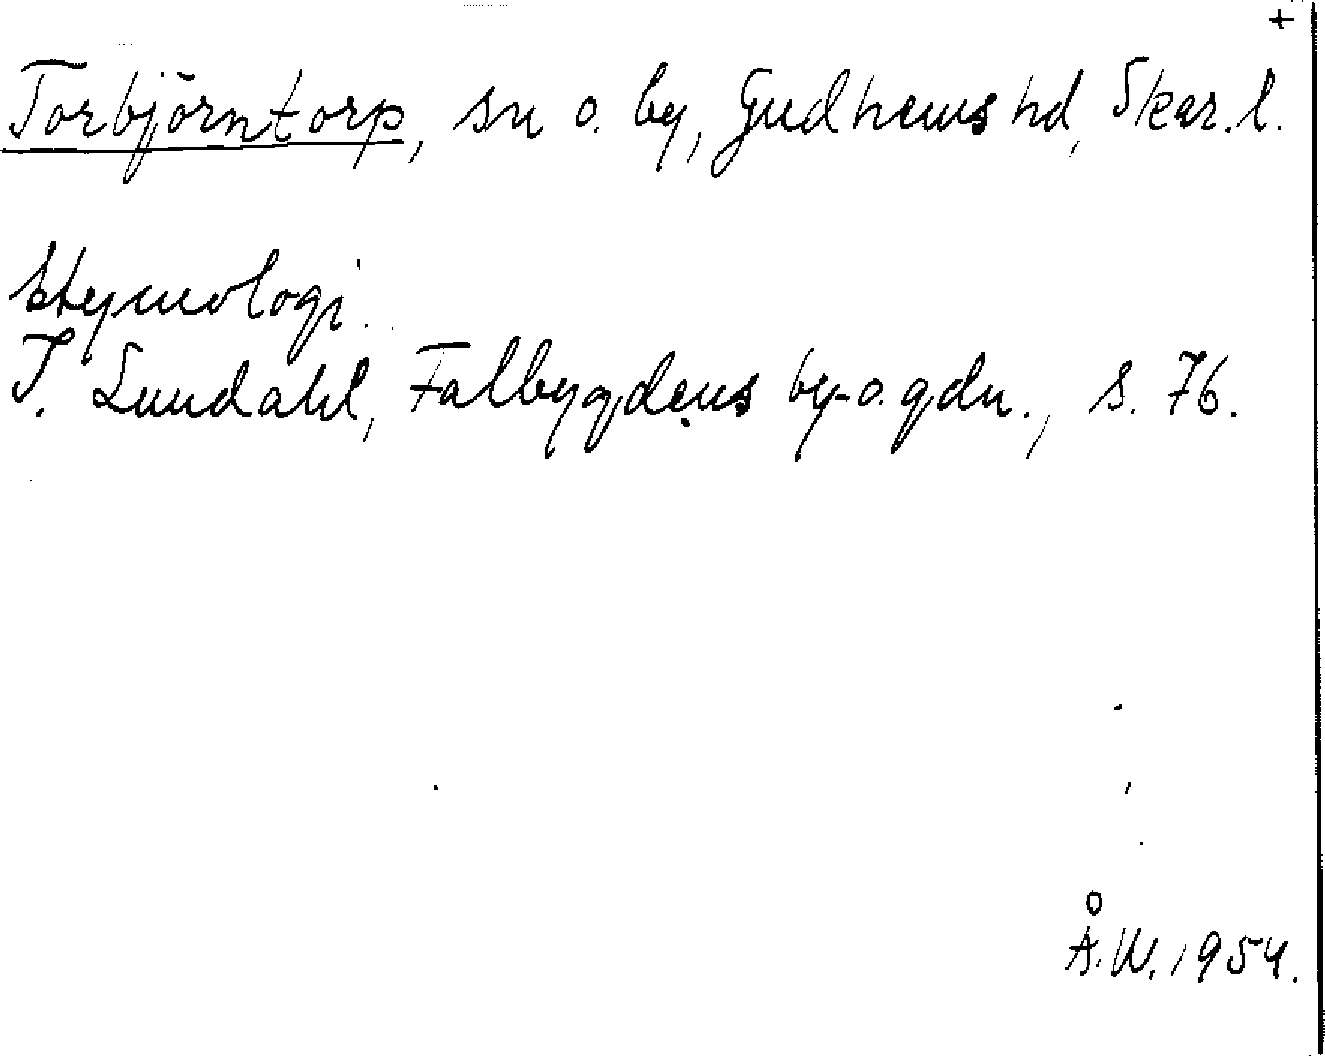 +
Torbjörntorp, sn o. by, Gudhems hd, Skar.l.
Etymologi.
I. Lundahl, Falbygdens by- o. gdn., s. 76.
Å.W. 1954.